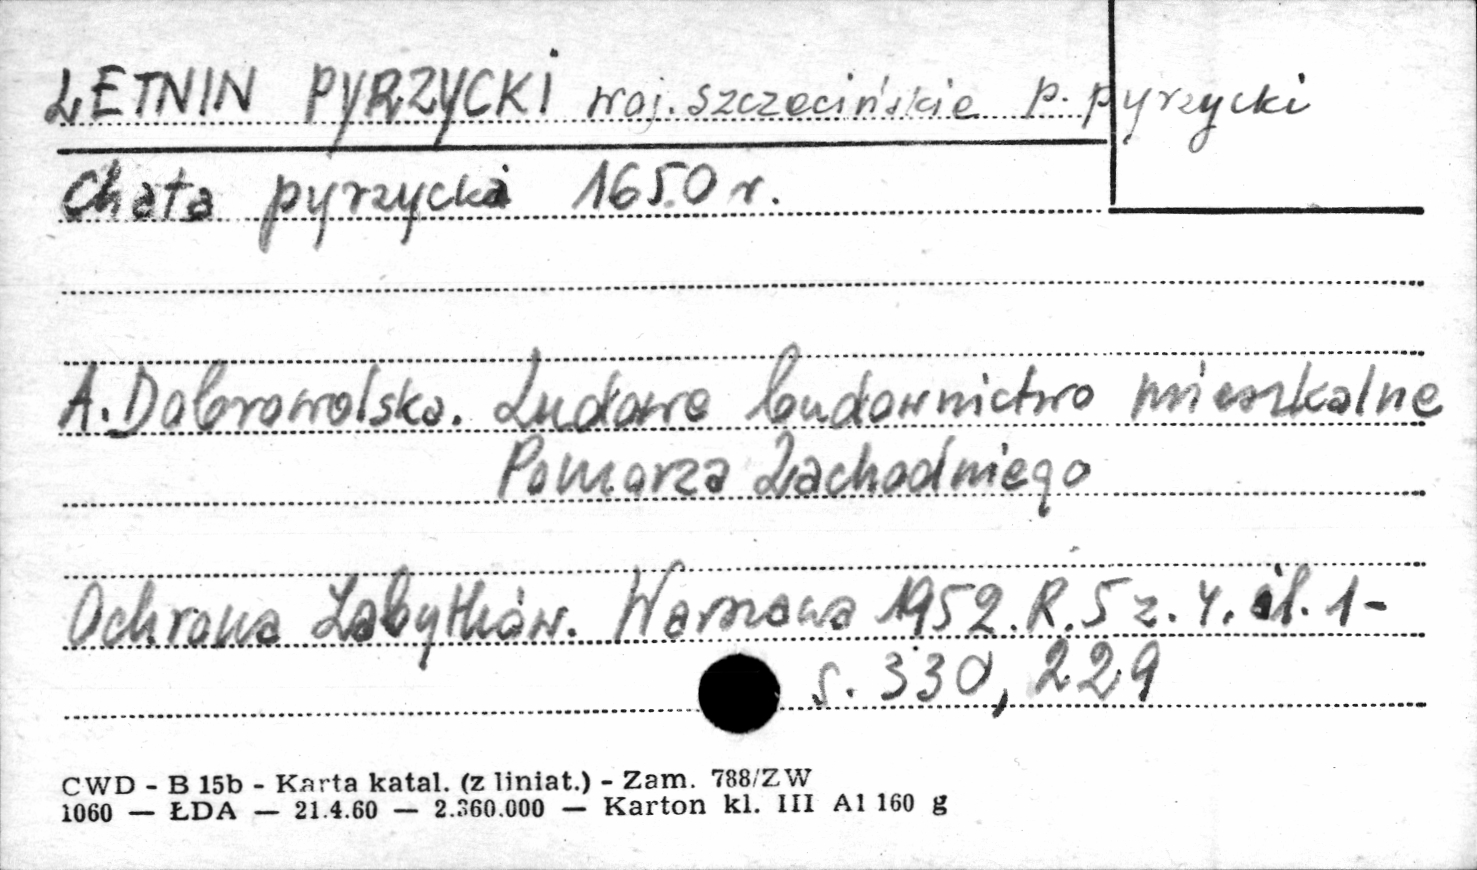 LETNIN PYRZYCKI woj. szczecińskie p. pyrzycki
Chata pyrzycka 1650 r.
A. Dobrowolska. Ludowe budownictwo mieszkalne
Pomorza Zachodniego
Ochrona Zabytków. Warszawa 1952. R. 5 z. 4. il. 1-
s. 330, 229
CWD - B 15b - Karta katal. (z liniat.) - Zam. 788/ZW
1060 — ŁDA — 21.4.60 — 2.360.000 — Karton kl. III A1 160 g